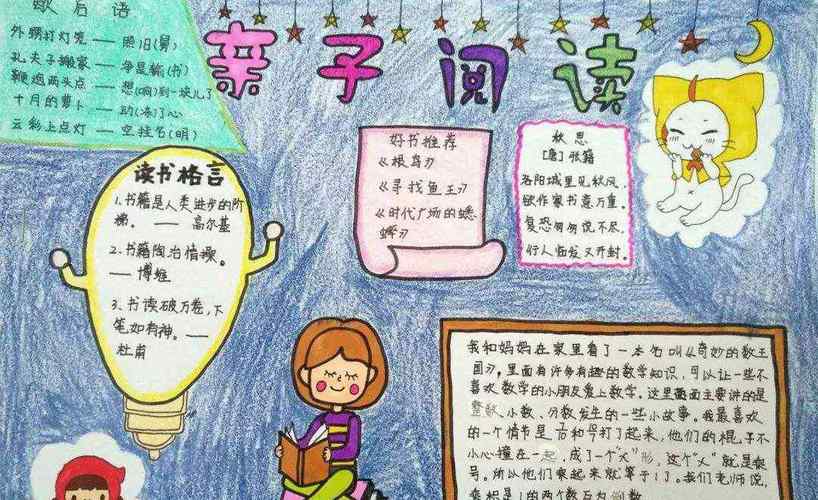 歇后语
外甥打灯笼 —— 照旧(舅)
孔夫子搬家 —— 净是输(书)
鞭炮两头点 —— 想(响)到一块儿了
十月的萝卜 —— 动(冻)了心
云彩上点灯 —— 空挂名(明)
亲子阅读
读书格言
1、书籍是人类进步的阶
梯。 —— 高尔基
2、书籍陶冶情操。
—— 博
3、书读破万卷,下
笔如有神。——
杜甫
好书推荐
《根鸟》
《寻找鱼王》
《时代广场的蟋
蟀》
秋思
[唐] 张籍
洛阳城里见秋风,
欲作家书意万重。
复恐匆匆说不尽,
行人临发又开封。
我和妈妈在家里看了一本名叫《奇妙的数王
国》,里面有许多有趣的数学知识,可以让一些不
喜欢数学的小朋友爱上数学。这里面面主要讲的是
整数、小数、分数发生的一些小故事。我最喜欢
的一个情节是和打了起来,他们的棍子不
小心撞在一起,成了个"×"形,这个"×"就是乘
号。所以他们乘起来就等于1了。我们老师说,
乘积是1的两个数互为倒数